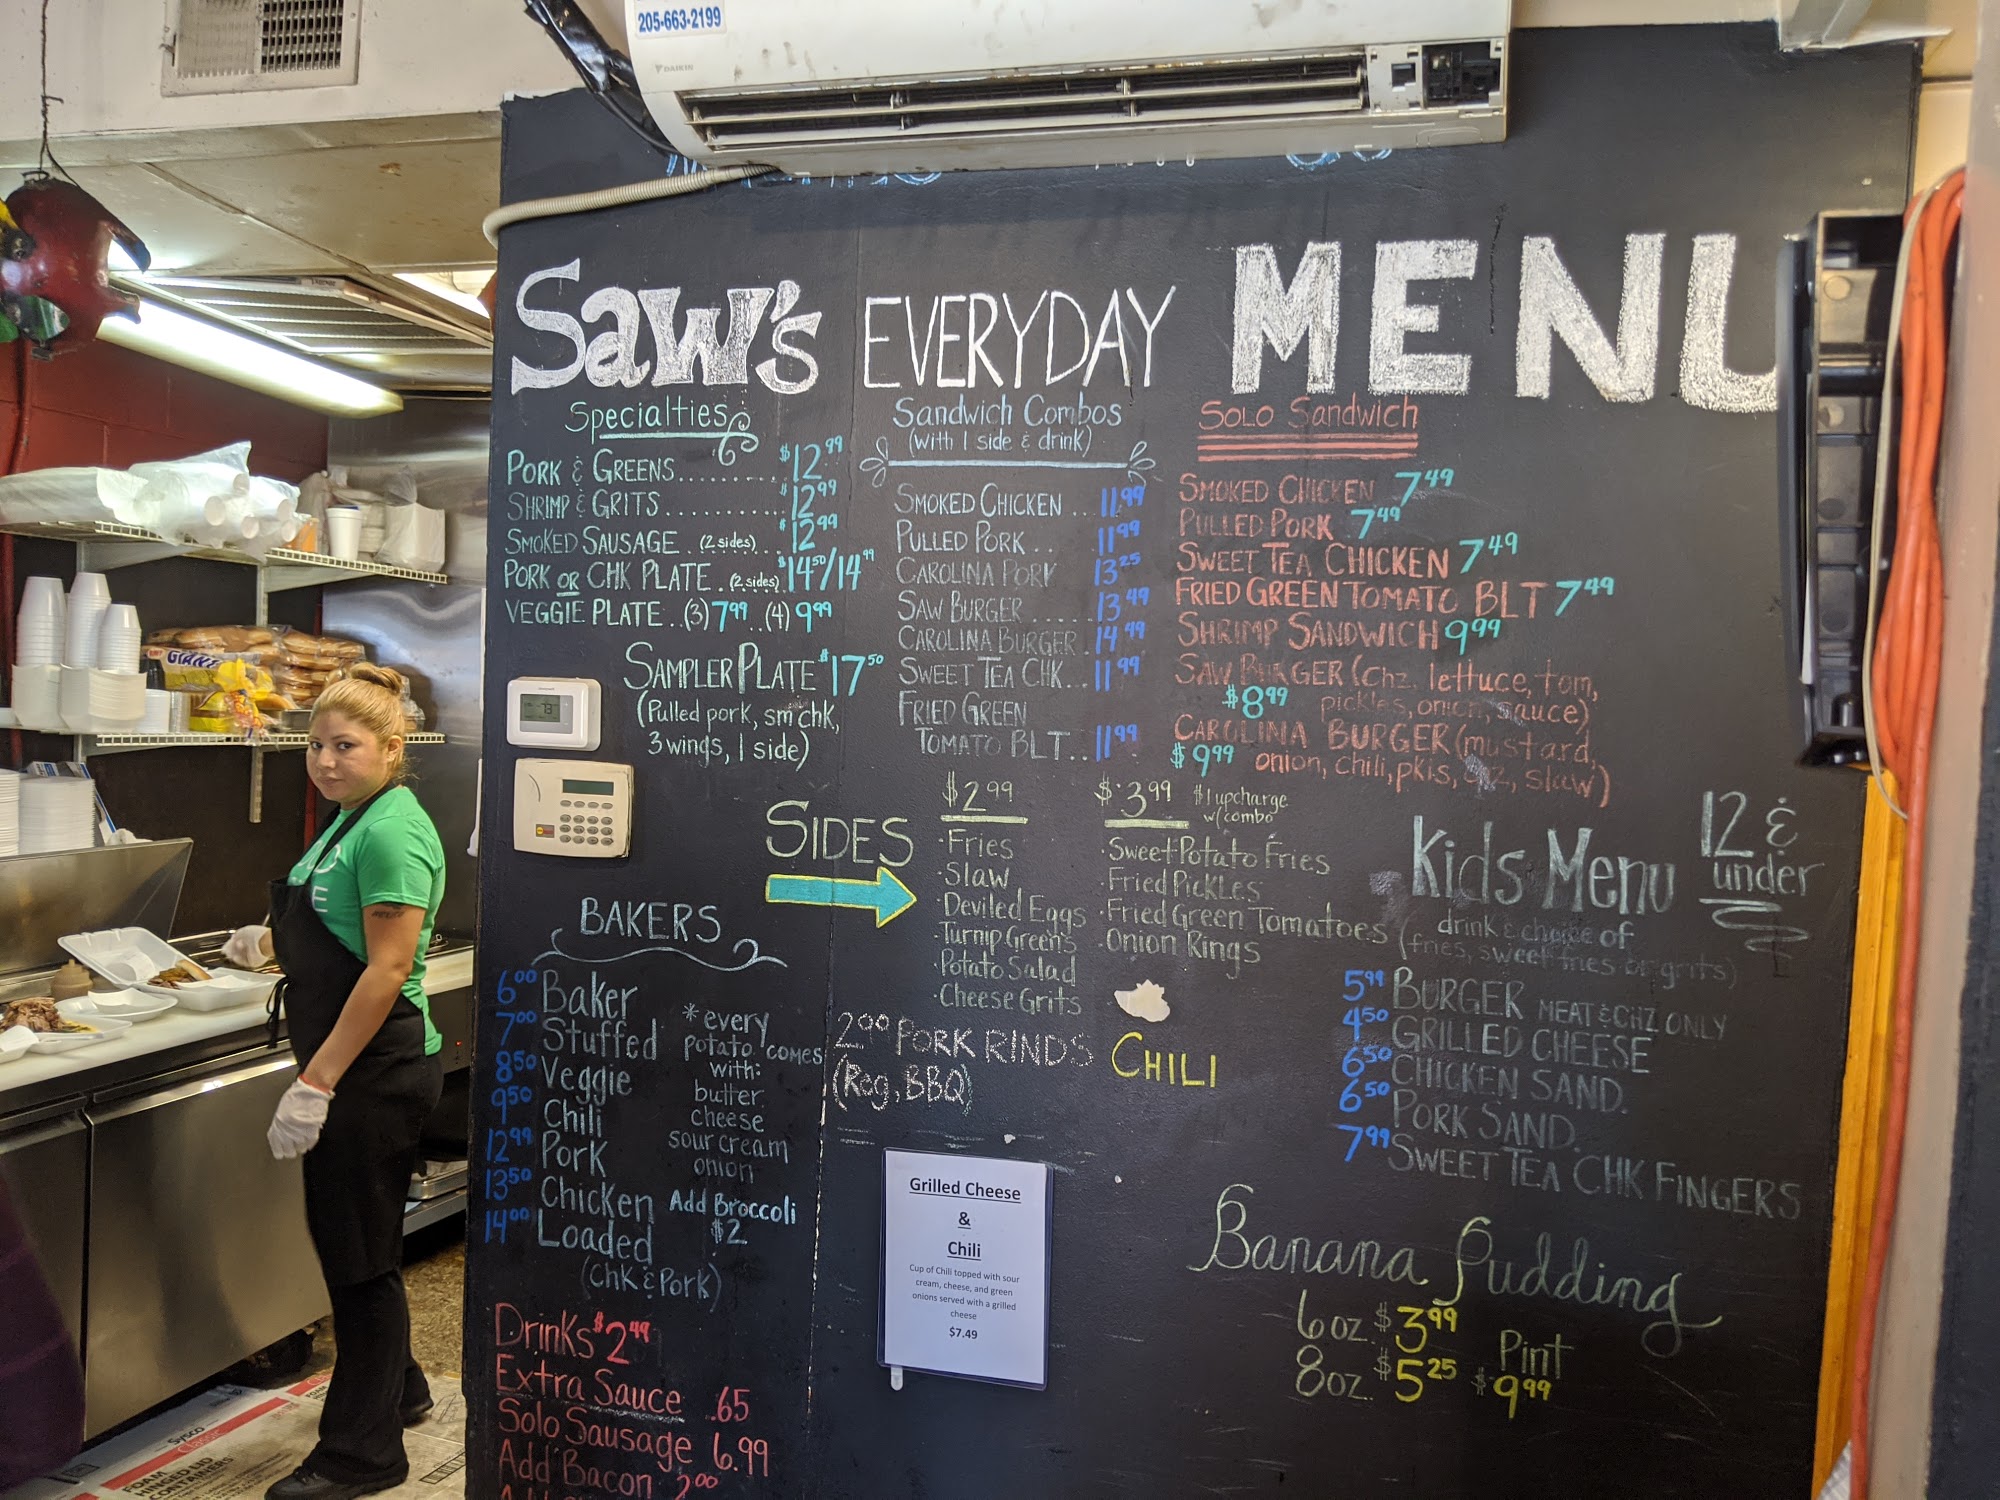 205-663-2199
DAIKIN
Saw's EVERYDAY MENU
Specialties
PORK & GREENS......... $12.99
SHRIMP & GRITS........... $12.99
SMOKED SAUSAGE..(2 sides)... $12.99
PORK OR CHK PLATE..(2 sides) $14.50/14.99
VEGGIE PLATE..(3) 7.99...(4) 9.99
SAMPLER PLATE $17.50
(Pulled pork, sm chk,
3 wings, 1 side)
Sandwich Combos
(with 1 side & drink)
SMOKED CHICKEN...11.99
PULLED PORK.. 11.99
CAROLINA PORK 13.25
SAW BURGER..... 13.49
CAROLINA BURGER. 14.49
SWEET TEA CHK... 11.99
FRIED GREEN
TOMATO BLT.. 11.99
SOLO SANDWICH
SMOKED CHICKEN 7.49
PULLED PORK 7.49
SWEET TEA CHICKEN 7.49
FRIED GREEN TOMATO BLT 7.49
SHRIMP SANDWICH 9.99
SAW BURGER (chz, lettuce, tom,
$8.99 pickles, onion, sauce)
CAROLINA BURGER (mustard,
$9.99 onion, chili, pkls, chz, slaw)
SIDES
$2.99
·Fries
·Slaw
·Deviled Eggs
·Turnip Greens
·Potato Salad
·Cheese Grits
$3.99 $1 upcharge
w/combo
·Sweet Potato Fries
·Fried Pickles
·Fried Green Tomatoes
·Onion Rings
2.00 PORK RINDS
(Reg, BBQ)
CHILI
BAKERS
6.00 Baker
7.00 Stuffed
8.50 Veggie
9.50 Chili
12.99 Pork
13.50 Chicken
14.00 Loaded
(Chk & Pork)
*every
potato comes
with:
butter
cheese
sour cream
onion
Add Broccoli
$2
Drinks $2.49
Extra Sauce .65
Solo Sausage 6.99
Add Bacon 2.00
Grilled Cheese
&
Chili
Cup of Chili topped with sour
cream, cheese, and green
onions served with a grilled
cheese
$7.49
Kids Menu 12 & under
(drink & choice of
fries, sweet fries or grits)
5.99 BURGER MEAT & CHZ ONLY
4.50 GRILLED CHEESE
6.50 CHICKEN SAND.
6.50 PORK SAND.
7.99 SWEET TEA CHK FINGERS
Banana Pudding
6 oz. $3.99
8 oz. $5.25
Pint
$9.99
GIANT
Honeywell
Sysco
Classic
FOAM
HINGED LID
CONTAINERS